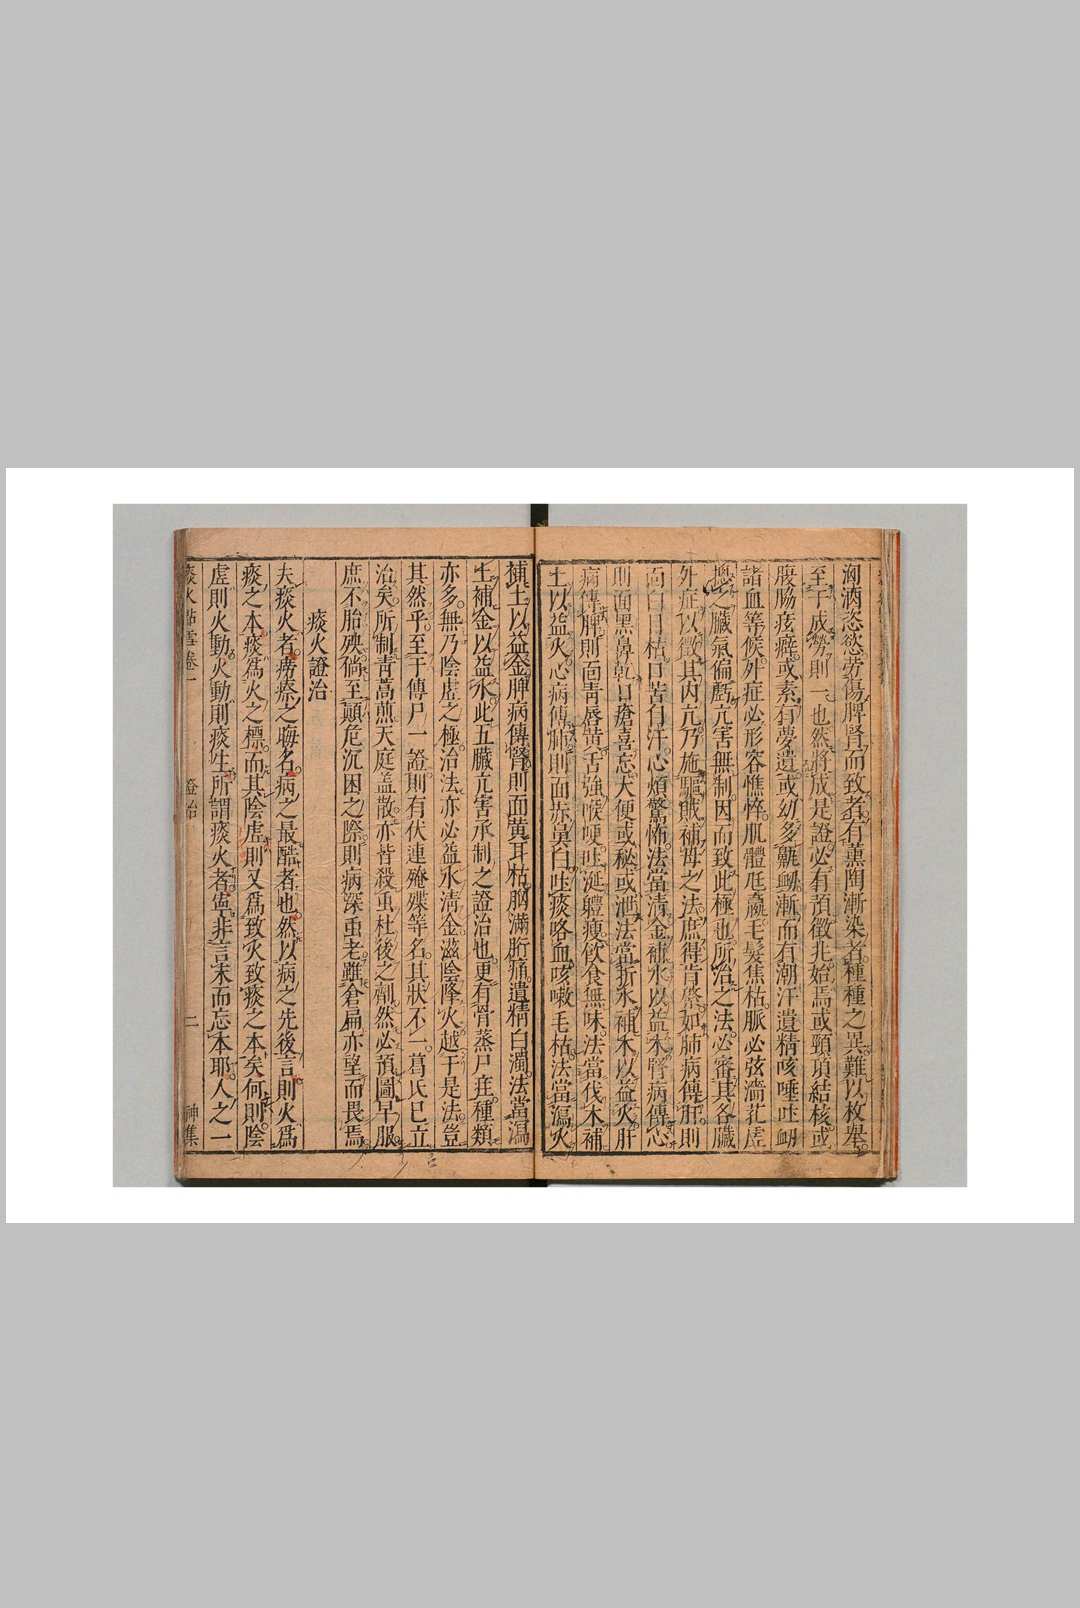 洶酒恣慾勞傷脾腎而致者有薰陶漸染者種種之異難以枚舉
至于成勞則一也然將成是證必有預徵兆始焉或頸項結核或
腹脇痃癖或素有夢遺或幼多鼽衂漸而有潮汗遺精咳唾吐衂
諸血等候外症必形容憔悴肌體尫羸毛髮焦枯脈必弦濇芤虛
總之臟氣偏虧亢害無制因而致此極也所治之法必審其各臟
外症以徵其内亢乃施驅賊補母之法庶得肯綮如肺病傳肝則
面白目枯口苦自汗心煩驚怖法當清金補水以益木腎病傳心
則面黑鼻乾口瘡喜忘大便或秘或泄法當折水補木以益火肝
病傳脾則面靑唇黄舌強喉哽吐涎軆瘦飲食無味法當伐木補
土以益火心病傳肺則面赤鼻白吐痰咯血咳嗽毛枯法當瀉火
補土以益金脾病傳腎則面黄耳枯胸滿胻痛遺精白濁法當瀉
土補金以益水此五臟亢害承制之證治也更有骨蒸尸疰種類
亦多無乃陰虛之極治法亦必益水淸金滋陰降火越于是法豈
其然乎至于傳尸一證則有伏連殗殜等名其狀不一葛氏已立
治矣所制靑蒿煎天庭盖散亦皆殺虫杜後之劑然必預圖早服
庶不胎殃倘至顚危沉困之際則病深虫老雖倉扁亦望而畏焉
痰火證治
夫痰火者癆瘵之晦名病之最酷者也然以病之先後言則火爲
痰之本痰爲火之標而其陰虛則又爲致火致痰之本矣何則陰
虛則火動火動則痰生所謂痰火者盖非言末而忘本耶人之一
痰火點雪卷一 證治 二 神集